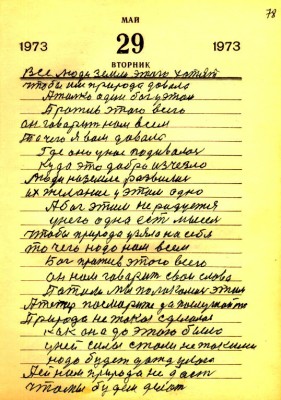 78
МАЙ
1973 29 1973
ВТОРНИК
Все люди земли этого хотят
чтобы им природа давала
А толко один бог этом
Против этого всего
он гаварит нам всем
То чего я вам давала
Где оно у нас подивалось
куда это добро изчезло
Люди на земле развили
их желание у этим одно
А бог этим не радуется
у него одна ест мысля
чтобы природа узяла на себя
то чего надо нам всем
Бог против этого всего
он нам гаварит свои слова
Потом мы полагаемся этим
А тепер посмарите да послухайте
Природа не така сделалас
как она до этого была
у ней силы стали не такими
надо будет
А ей нам природа не даст
что мы будем делат